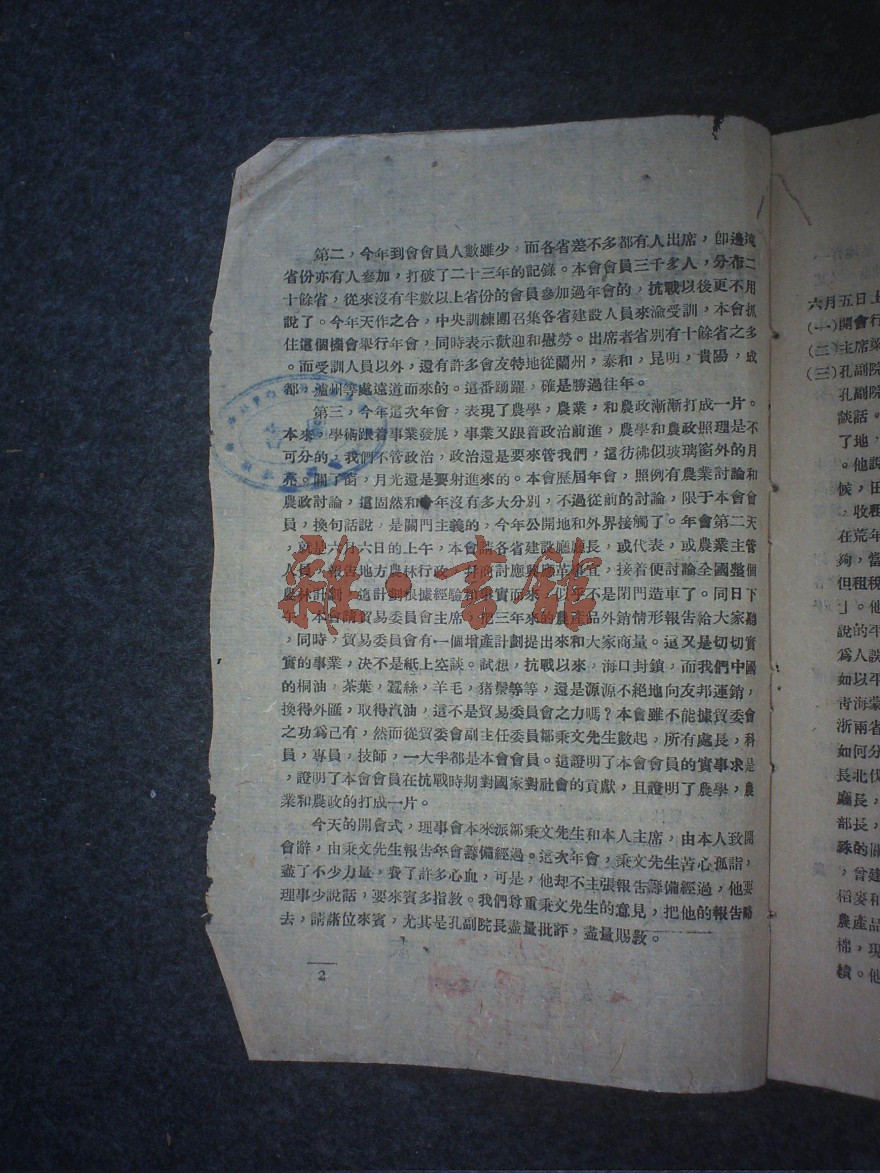 第二，今年到會會員人數雖少，而各省差不多都有人出席，卽邊遠
省份亦有人參加，打破了二十三年的記錄。本會會員三千多人，分布二
十餘省，從來沒有半數以上省份的會員參加過年會的，抗戰以後更不用
說了。今年天作之合，中央訓練團召集各省建設人員來渝受訓，本會抓
住這個機會舉行年會，同時表示歡迎和慰勞。出席者省別有十餘省之多
。而受訓人員以外，還有許多會友特地從蘭州，泰和，昆明，貴陽，成
都，瀘州等處遠道而來的。這番踴躍，確是勝過往年。
第三，今年這次年會，表現了農學，農業，和農政漸漸打成一片。
本來，學術跟着事業發展，事業又跟着政治前進，農學和農政照理是不
可分的，我們不管政治，政治還是要來管我們，這彷彿似玻璃窗外的月
亮。關了窗，月光還是要射進來的。本會歷屆年會，照例有農業討論和
農政討論，這固然和年沒有多大分別，不過從前的討論，限于本會會
員，換句話說，是關門主義的，今年公開地和外界接觸了。年會第二天
，就是六月六日的上午，本會請各省建設廳廳長，或代表，或農業主管
人員，報告地方農林行政，並商討應興應革事宜，接着便討論全國整個
農林計劃，這計劃根據經驗和事實而來，以乎不是閉門造車了。同日下
午，本會請貿易委員會主席，把三年來的農產品外銷情形報告給大家聽
，同時，貿易委員會有一個增產計劃提出來和大家商量。這又是切切實
實的事業，决不是紙上空談。試想，抗戰以來，海口封鎖，而我們中國
的桐油，茶葉，蠶絲，羊毛，猪鬃等等，還是源源不絕地向友邦運銷，
換得外匯，取得汽油，這不是貿易委員會之力嗎？本會雖不能據貿委會
之功爲己有，然而從貿委會副主任委員鄒秉文先生數起，所有處長，科
員，專員，技師，一大半都是本會會員。這證明了本會會員的實事求是
，證明了本會會員在抗戰時期對國家對社會的貢獻，且證明了農學，農
業和農政的打成一片。
今天的開會式，理事會本來派鄒秉文先生和本人主席，由本人致開
會辭，由秉文先生報告年會籌備經過。這次年會，秉文先生苦心孤詣，
盡了不少力量，費了許多心血，可是，他却不主張報告籌備經過，他要
理事少說話，要來賓多指教。我們尊重秉文先生的意見，把他的報告略
去，請諸位來賓，尤其是孔副院長盡量批評，盡量賜教。
2
六月五日上
(一)開會行
(二)主席梁
(三)孔副院
孔副院
談話。
了地，
。他說
候，田
，收租
在荒年
夠，當
但租稅
」。他
說的平
爲人談
如以平
靑海蒙
浙兩省
如何分
長北伐
廳長，
部長，
殊的關
，曾建
稻麥和
農產品
棉，現
績。他
雜·書館